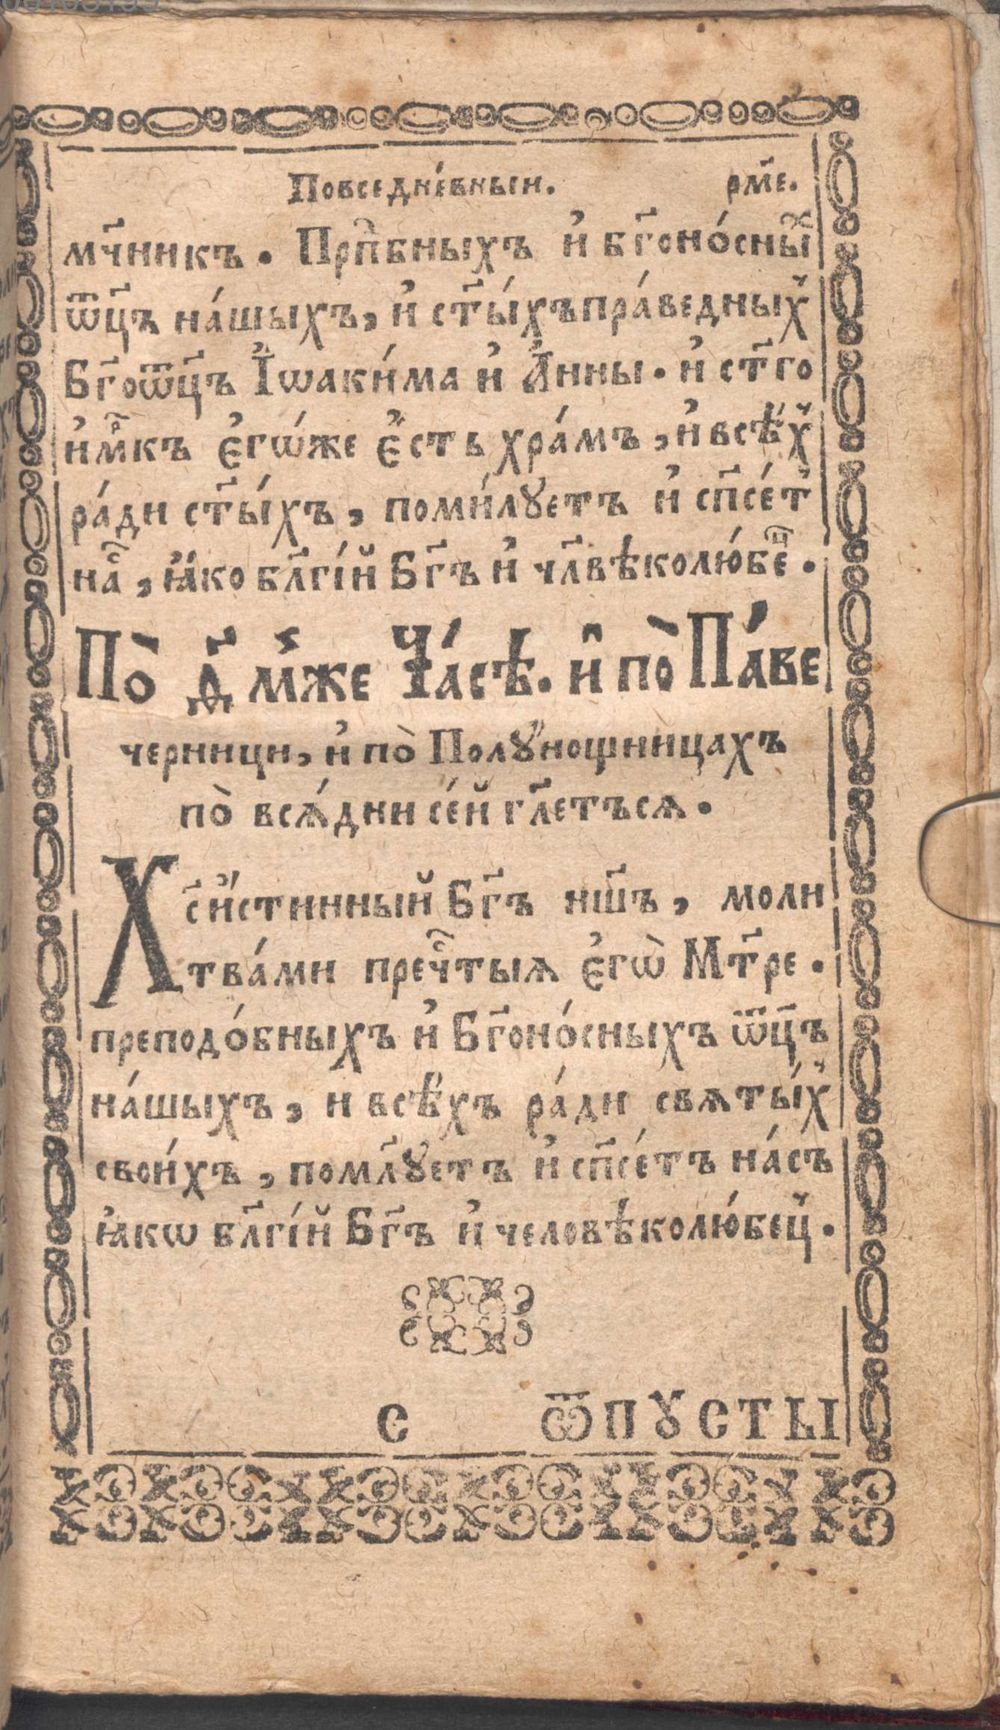 Повседне́вныи. рм҃е.
мч҃никъ. Прпⷣбныхъ и҆ бг҃оно́сныⷯ
ѿц҃ъ на́шыхъ, и҆ ст҃ы́хъ пра́ведныⷯ
Бг҃оѿц҃ъ І҆ѡаки́ма и҆ А҆́нны. и҆ ст҃го
и҆мⷬ҇къ є҆гѡ́же є҆́сть хра́мъ, и҆ всѣ́ⷯ
ра́ди ст҃ы́хъ, поми́лꙋетъ и҆ сп҃се́тⸯ
наⷭ҇, ꙗ҆́ко бл҃гі́й Бг҃ъ и҆ чл҃вѣколю́беⷰ҇.
По̀ д҃ мⸯже Ча́сѣ. и҆ по̀ Па́ве
черници, и҆ по̀ Полꙋ́нощницахъ
по̀ всѧ́ дни се́й гл҃етъсѧ.
Хс҃ и҆́стинный Бг҃ъ нш҃ъ, моли
тва́ми преⷱ҇тыѧ є҆гѡ̀ Мт҃ре.
преподо́бныхъ и҆ Бг҃оно́сныхъ ѿц҃ъ
на́шыхъ, и всѣ́хъ ра́ди свѧты́хⸯ
свои́хъ, помл҃ꙋетъ и҆ сп҃се́тъ на́съ
ꙗ҆́кѡ бл҃гі́й Бг҃ъ и҆ человѣколю́бецⸯ.
с ѿпꙋсты